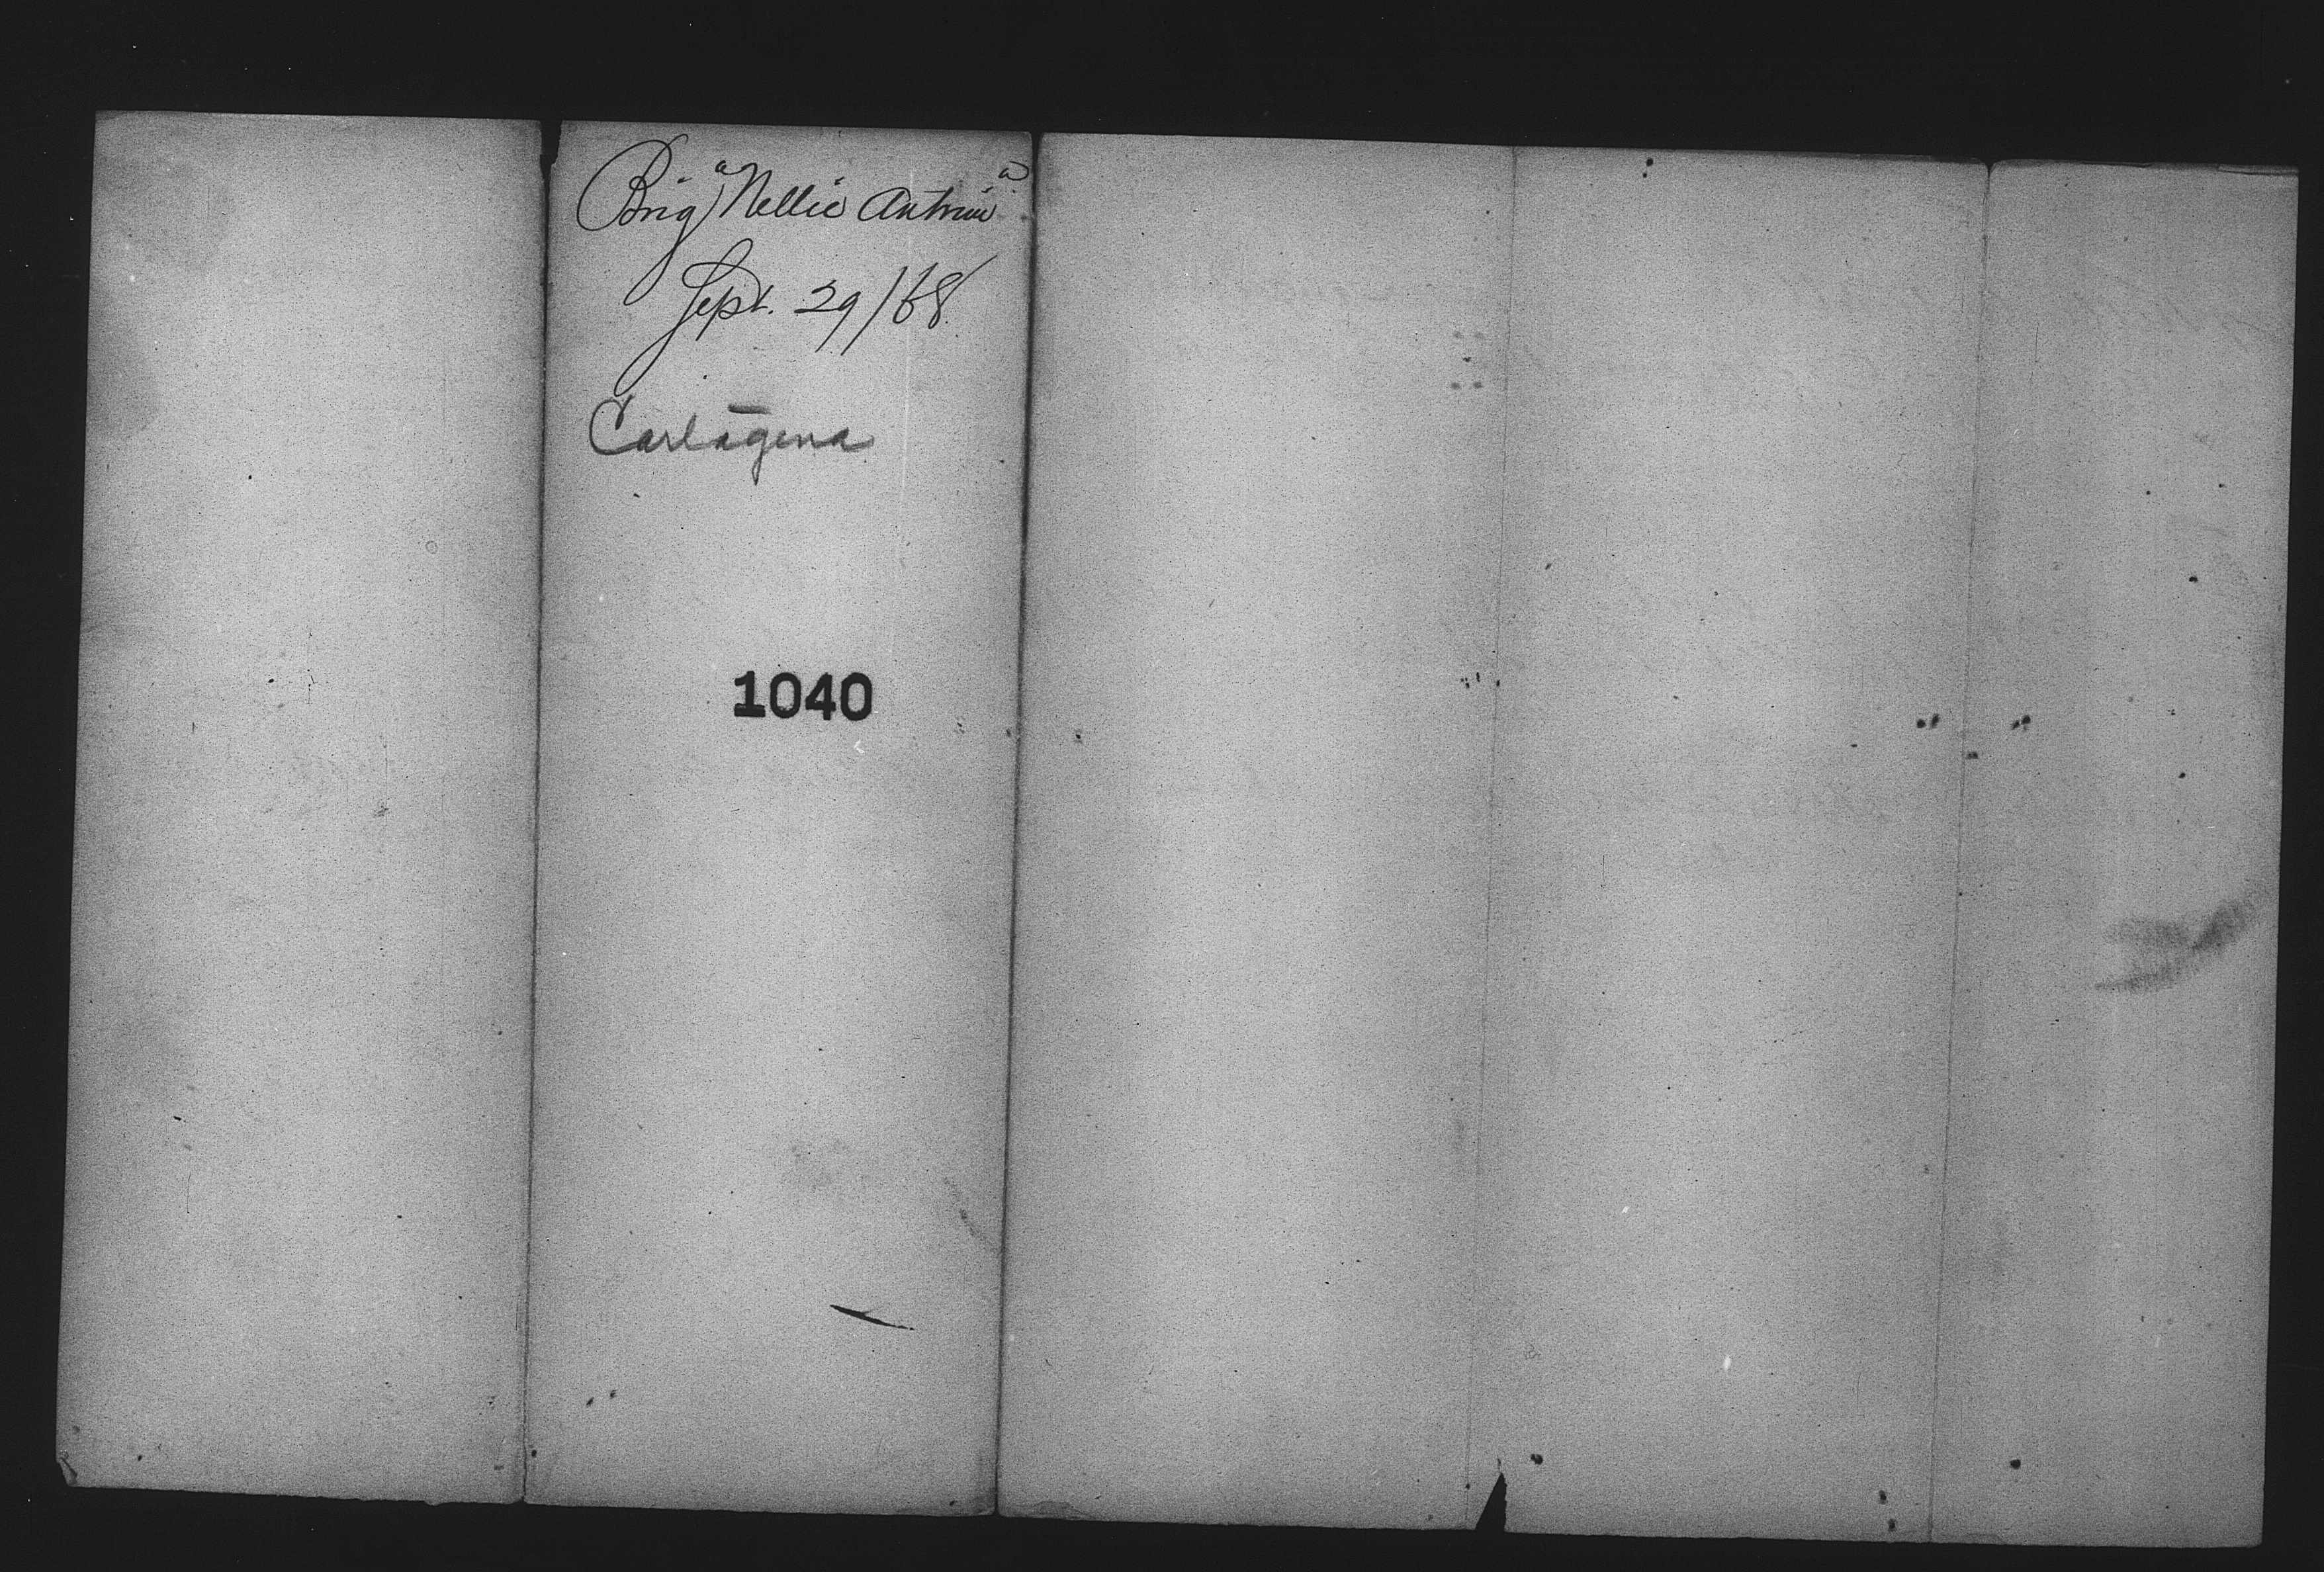 Brig "Nellie Antrim"
Sept. 29/68
Cartagena
1040